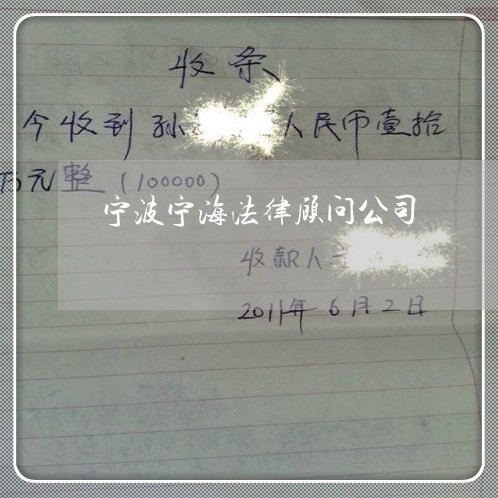 收条
今收到孙 人民币壹拾
万元整(100000)
宁波宁海法律顾问公司
收款人
2011年6月2日